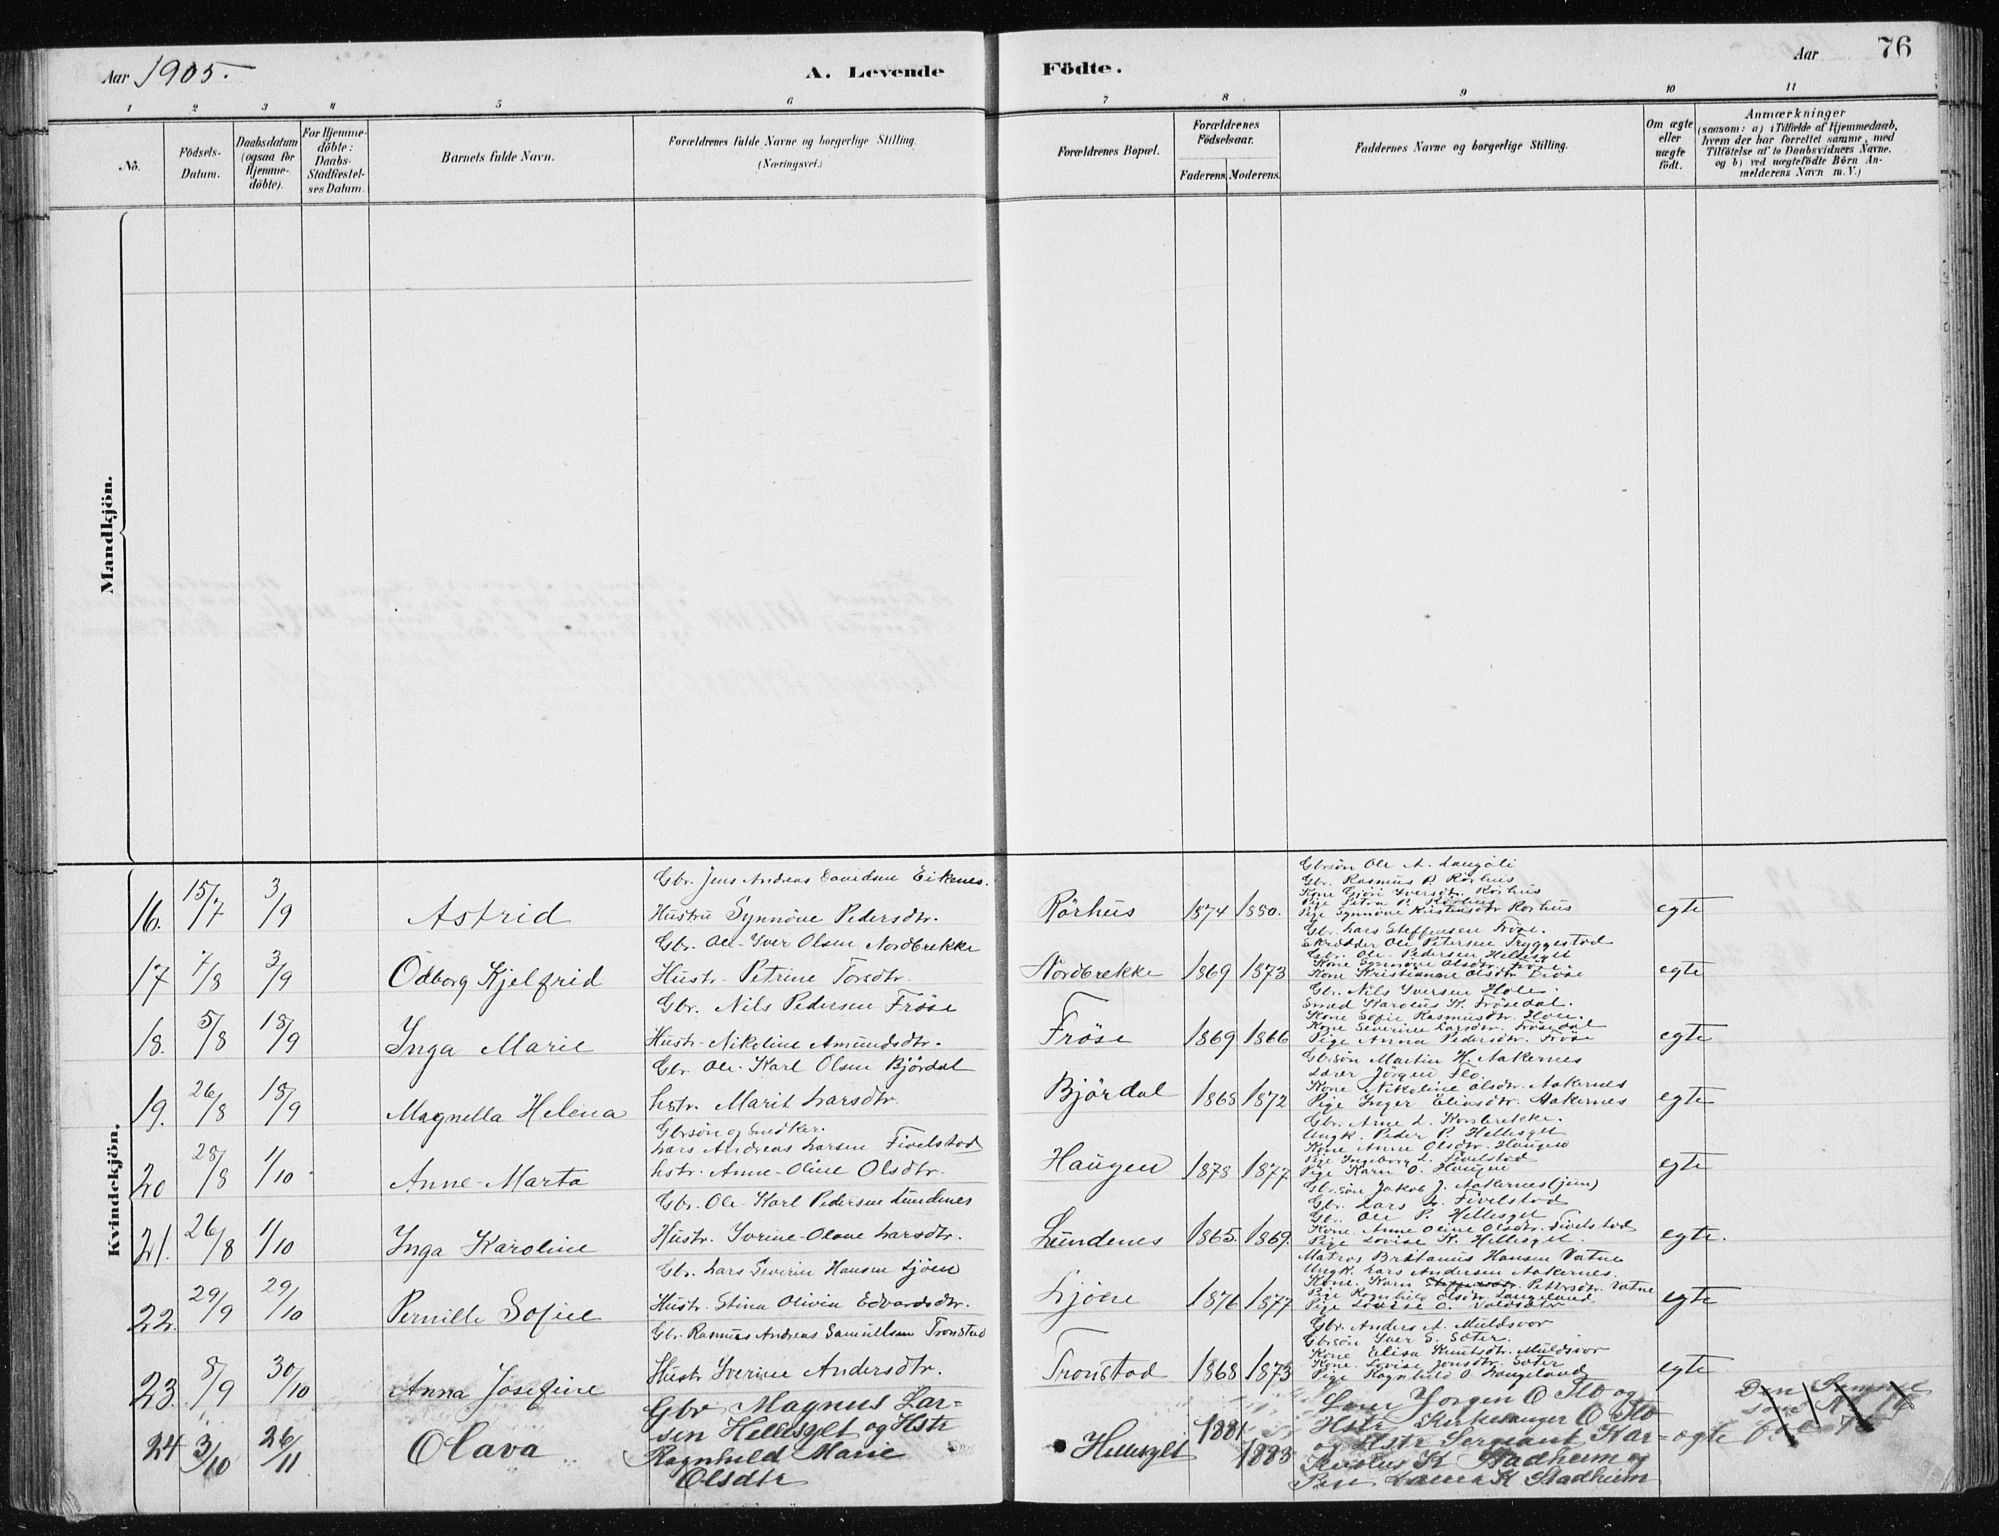 Aar 1905.
A. Levende Födte.
Aar 76
1 2 3 4 5 6 7 8 9 10 11
No.
Födsels-
Datum.
Daabsdatum
(ogsaa for
Hjemme-
döbte).
For Hjemme-
döbte:
Daabs-
Stadfæstel-
ses Datum.
Barnets fulde Navn.
Forældrenes fulde Navne og borgerlige Stilling.
(Næringsvei.)
Forældrenes Bopæl.
Forældrenes
Födselsaar.
Faderens. Moderens.
Faddernes Navne og borgerlige Stilling.
Om ægte
eller
uægte
födt.
Anmærkninger
(saasom: a) i Tilfælde af Hjemmedaab,
hvem der har forrettet samme, med
Tilföielse af to Daabsvidners Navne.
og b) ved uægtefödte Börn An-
melderens Navn m. V.)
Mandkjön.
Kvindekjön.
16. 15/7 3/9 Astrid
Gbr. Jens Andreas Davidsen Eikenes.
Hustru Synnöve Pedersdtr.
Rörhus 1874 1880.
Gbrsön Ole A. Langöli
Gbr. Rasmus P. Rörhus
Kone Gjöri Iversdtr. Rörhus
Pige Petra P. Rörhus
Pige Synnöve Kristensdtr Rörhus
egte
17 7/8 3/9 Odborg Kjelfrid
Gbr. Ole-Iver Olsen Nordbrekke
Hustr. Petrine Torsdtr.
Nordbrekke 1869 1873
Gbr. Lars Steffensen Fröse.
Skrædder Ole Petersen Tryggestad
Gbr. Ole Pedersen Hellesylt
Kone Synnöve Olsdtr. Fröse
Kone Kristianne Olsdtr. Fröse
egte
18. 5/8 18/9 Inga Marie
Gbr. Nils Pedersen Fröse
Hustr. Nikoline Amundsdtr.
Fröse 1869 1866
Gbr. Nils Iversen Hole.
Smed Karolus K. Frösedal.
Kone Sofie Rasmusdtr. Hole.
Kone Severine Larsdtr. Frösedal
Pige Anna Pedersdtr. Fröse
egte
19. 26/8 18/9 Magnella Helena
Gbr. Ole-Karl Olsen Björdal
hstr. Marit Larsdtr.
Björdal 1868 1872
Gbrsön Martin H. Aakernes
Lærer Jörgen Flo.
Kone Nikoline Olsdtr. Aakernes
Pige Inger Eliasdtr. Aakernes
egte
20 28/8 1/10 Anne-Marta
Gbrsön og Snedker.
Lars Andreas Larsen Fivelstad
hstr. Anne-Oline Olsdtr.
Haugen 1878 1877
Gbr. Arne L. Korsbrekke.
Ungk. Peder P. Hellesylt
Kone Anne Olsdtr. Haugen
Pige Ingeborg L. Fivelstad
Pige Karn O. Haugen
egte
21. 26/8 1/10 Inga Karoline
Gbr. Ole-Karl Pedersen Lundenes
Hustr. Ivrine-Olave Larsdtr.
Lundenes 1865. 1869.
Gbrsön Jakob J. Aakernes (jun)
Gbr. Lars L. Fivelstad
Gbr. Ole P. Hellesylt
Kone Anne Oline Olsdtr. Fivelstad
Pige Lovise K. Hellesylt.
egte.
22. 29/9 29/10 Pernille Sofie
Gbr. Lars Severin Hansen Ljöen
Hustr. Stina Olivia Edvardsdtr.
Ljöene 1876 1877
Matros Britanus Hansen Vatne
Ungk. Lars Andersen Aakernes.
Kone. Karn Pettersdtr. Vatne
Pige Ragnhild Olsdtr. Langeland
Pige Lovise O. Voldsdtr
egte
23. 8/9 30/10 Anna Josefine
Gbr. Rasmus Andreas Samuelsen Tronstad
Hustr Iverine Andersdtr.
Tronstad 1868 1873
Gbr. Anders A. Muldsvor
Gbrsön Iver S. Sæter.
Kone Elisa Knutsdtr. Muldsvor
Kone. Lovise Jonsdtr. Sæter
Pige Ragnhild O. Langeland
egte
24 3/10 26/11 Olava
Gbr Magnus Lar-
sen Hellesylt og Hstr
Ragnhild Marie
Olsdtr
Hellesylt 1881 1883
Lærer Jorgen O Flo og
Hstr Kirkesanger O Flo
og Hstr Sergeant Kar-
K Stadheim og
Pige Laura K Stadheim
egte
Den Samme
som N